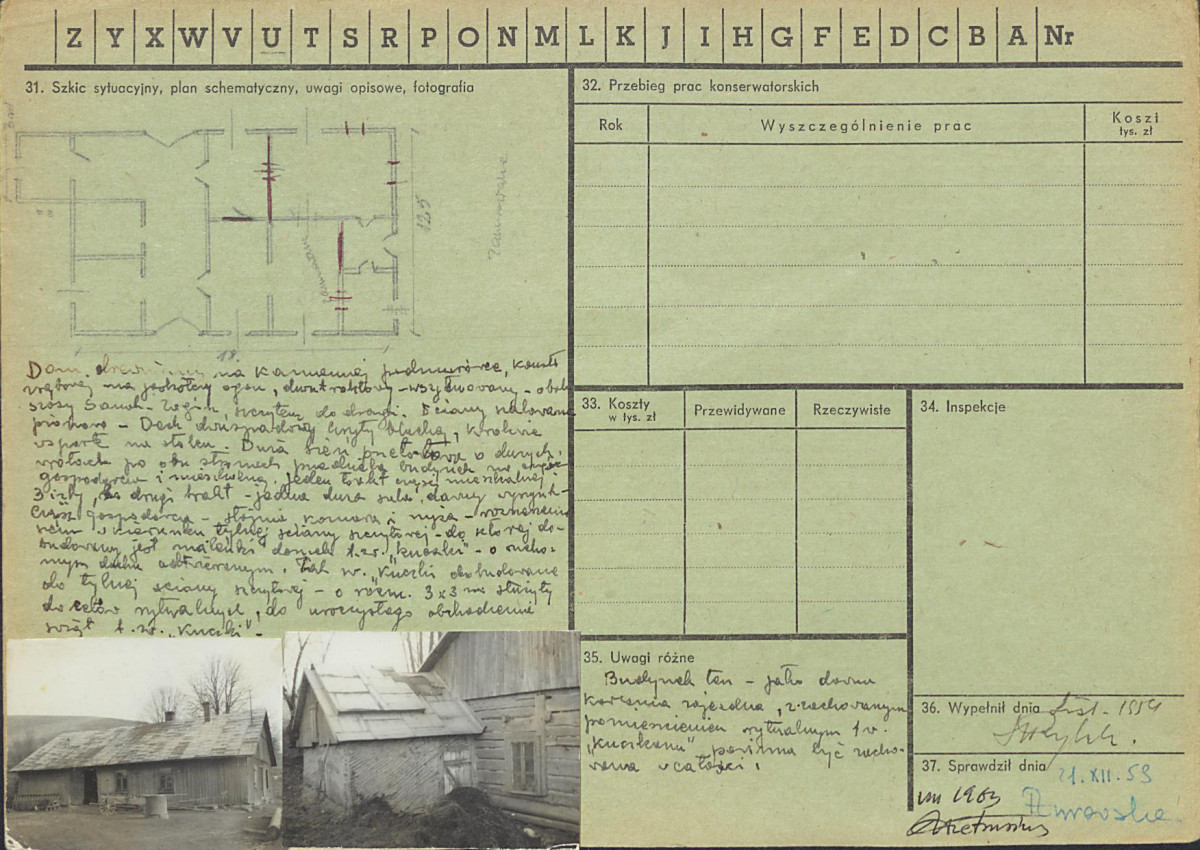 Z Y X W V U T S R P O N M L K J I H G F E D C B A Nr
31. Szkic sytuacyjny, plan schematyczny, uwagi opisowe, fotografia
12,5
zamurowane
18
Dom drewniany na kamiennej podmurówce, konstr.
zrębowej na jaskółczy ogon, dwutraktowy – wszytuowany – obok
szosy Sanok – szczytem do drogi. Ściany szalowane
pionowo – Dach dwuspadowy kryty blachą, krokwie
wsparte na stolcu. Duża sień przelotowa o dużych
wrotach po obu stronach przedziela budynek na część
gospodarczą i mieszkalną. Jeden trakt części mieszkalnej
3 izby, drugi trakt – jedna duża sala, dawny wyszynk –
Część gospodarcza – stajnia komora i
w kierunku tylnej ściany szczytowej – do której do-
budowany jest maleńki domek t.zw. „kuczki" – o rucho-
mym dachu odtwieranym. Tak zw. „Kuczki dobudowane
do tylnej ściany szczytowej – o rozm. 3x3 m służyły
do celów rytualnych, do uroczystego obchodzenia
świąt t. zw. „kuczki" –
32. Przebieg prac konserwatorskich
Rok Wyszczególnienie prac Koszt tys. zł
33. Koszty w tys. zł Przewidywane Rzeczywiste
34. Inspekcje
35. Uwagi różne
Budynek ten – jako dawna
karczma zajezdna, z zachowanym
pomieszczeniem rytualnym t zw.
„kuczkami" powinna być zacho-
wana w całości.
36. Wypełnił dnia list. 1959
37. Sprawdził dnia 21.XII.59
1963